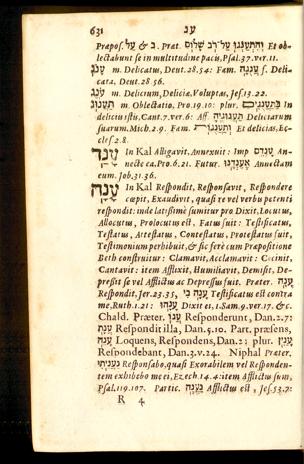 631 ענ
Præpos. ב & עַל. Prat. וְהִתְעַנְּגוּ עַל־רֹב שָׁלוֹם Et ob-
lectabunt se in multitudine pacis, Psal. 37. ver. 11.
עָנֹג m. Delicatus, Deut. 28. 54: Fam. עֲנֻגָּה f. Delica-
cata. Deut. 28. 56.
עֹנֶג m. Delicium, Deliciæ, Voluptas, Jes. 13. 22.
תַּעֲנוּג m. Oblectatio, Pro. 19. 10: plur. בְּתַעֲנוּגִים In
deliciis istis, Cant. 7. ver. 6: Aff. Deliciarum
suarum. Mich. 2. 9. Fam. Et delicias, Ec-
cles. 2. 8.
עָנַד In Kal Alligavit. Annexuit: Imp עָנְדֵם An-
necte ea. Pro. 6. 21. Futur. אֶעֶנְדֶנּוּ Annectam
eum. Job. 31. 36.
עָנָה In Kal Respondit, Responsavit, Respondere
cœpit, Exaudivit, quasi re vel verbu petenti
respondit: inde latissimè sumitur pro Dixit, Locutus,
Allocutus, Prolocutus est, Fatus suit: Testificatus,
Testatus, Attestatus, Contestatus, Protestatus suit,
Testimonium perhibuit, & sic ferè cum Præpositione
Beth construitur: Clamavit, Acclamavit: Cecinit,
Cantavit: item Afflixit, Humiliavit, Demisit, De-
pressit se vel Afflictus ac Depressus suit. Præter. עָנָה
Respondit, Jer. 23. 35, עָנָה בִי Testificatus est contra
me, Ruth. 1. 21: עָנָהוּ Dixit ei, 1. Sam. 9. ver. 17. &c.
Chald. Præter. עֲנוֹ Responderunt, Dan. 2. 7:
עֲנָת Respondit illa, Dan. 5. 10. Part. præsens,
עָנֵה Loquens, Respondens, Dan. 2; plur. עָנַיִן
Respondebant, Dan. 3. v. 24. Niphal Præter.
נַעֲנֵיתִי Responsabo, quasi Exorabilem vel Responden-
tem exhibebo me ei, Ezech. 14. 4: item Afflictus sum,
Psal. 119. 107. Partic. נַעֲנֶה Afflictus est, Jes. 53. 7:
R 4